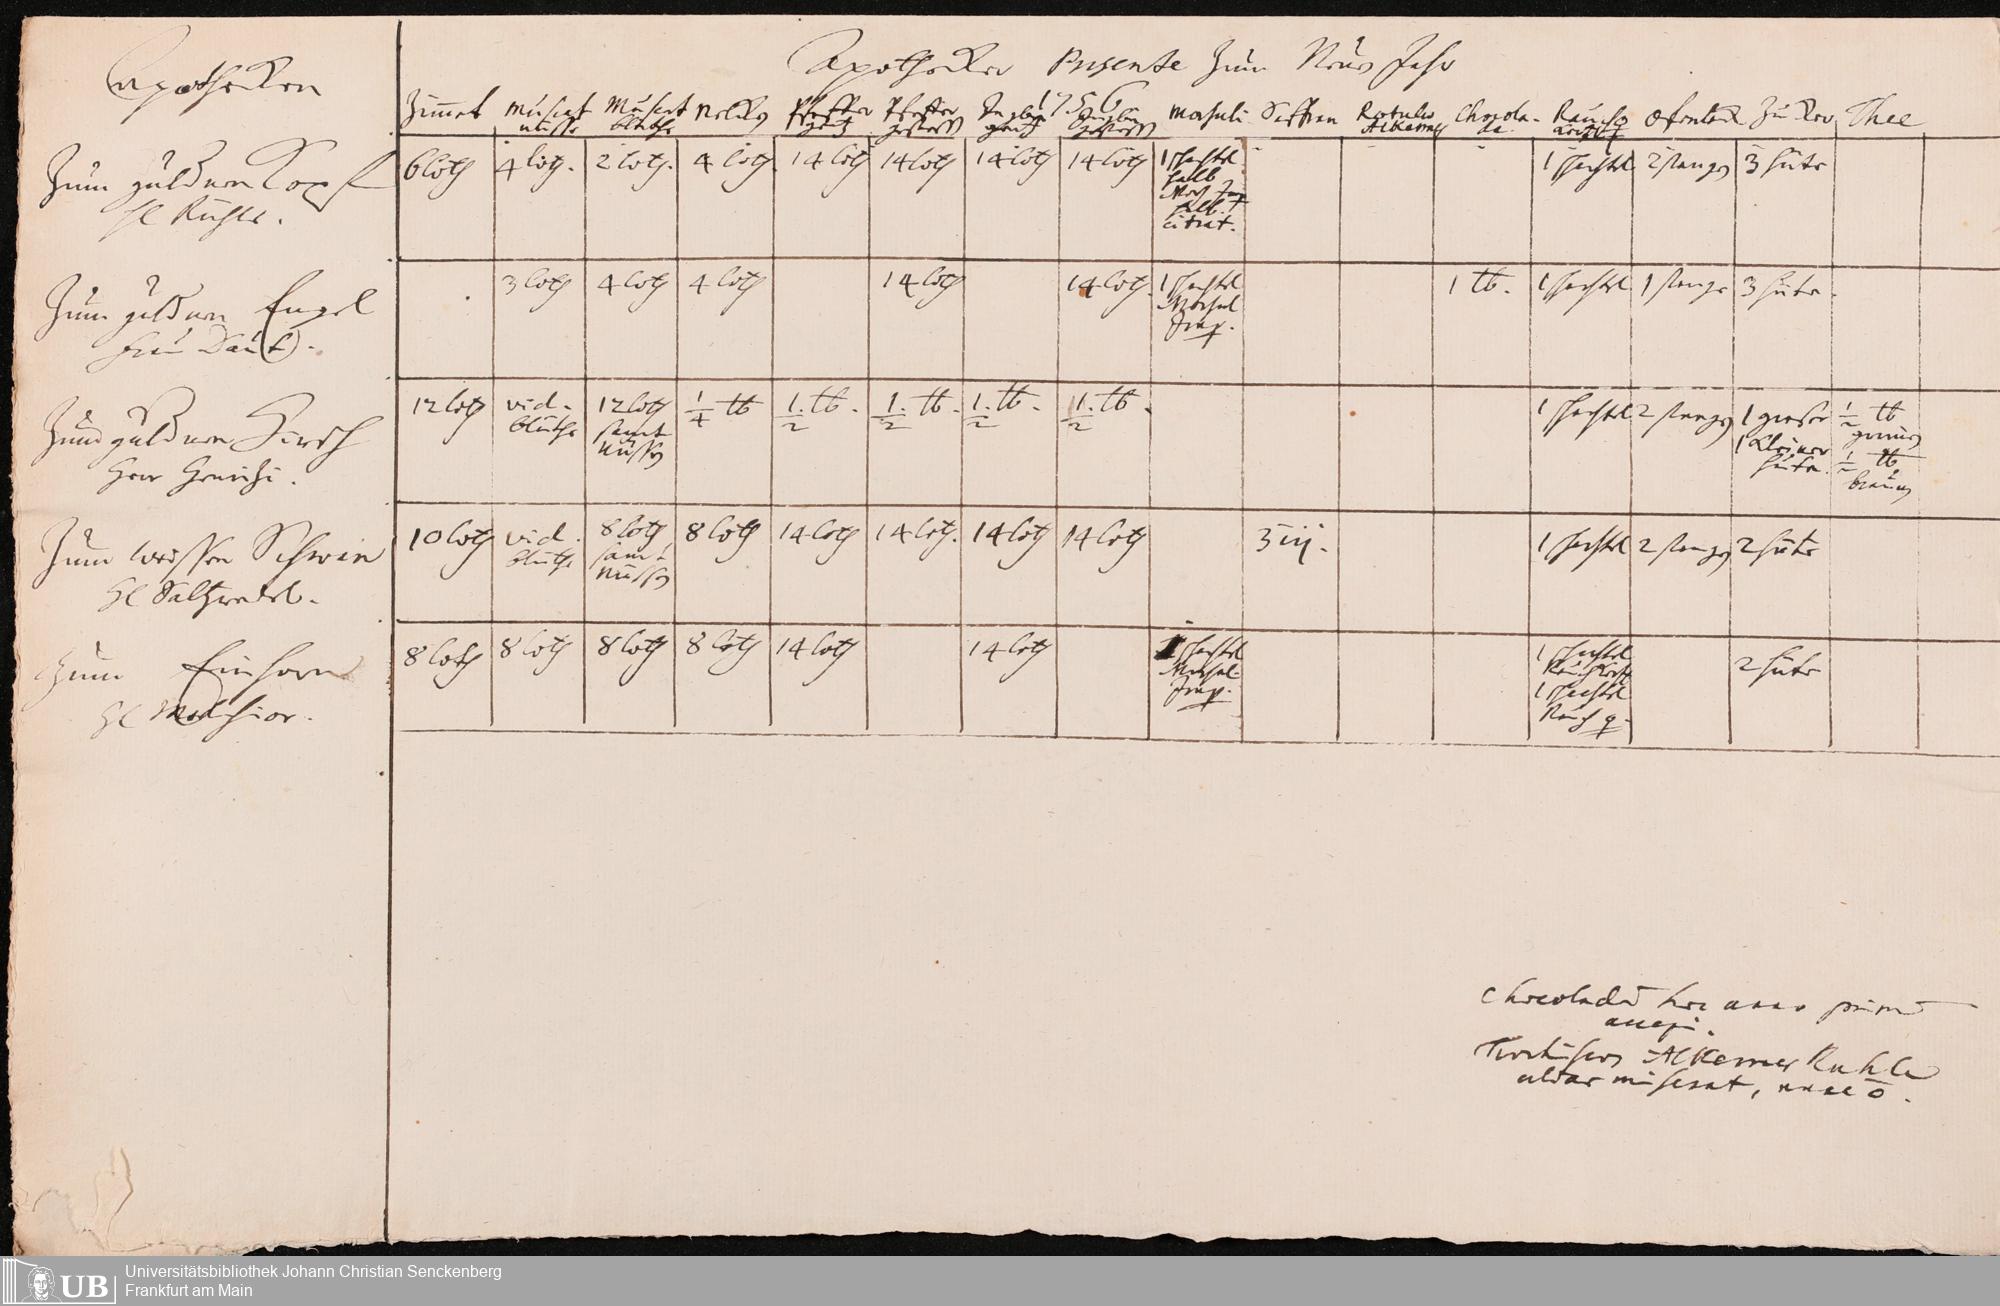 Apothecken
Apothecker Presente zum Neuen Jahr
1756
Zimmet
Muscat
nüsse
Muscat
blüthe
Nelken
Pfeffer
gantz
Pfeffer
gestoss
Ingber
gantz
Ingber
gestoss
Morsuli
Saffran
Rotulae
Alkermes
Chocola-
da
Rauch
Ofenlack
Zucker
Thee
Zum guldnen Kopf
H Ruhle.
6 loth
4 loth.
2 loth.
4 loth
14 loth
14 loth
14 loth
14 loth
1 schachtel
halb
Mors Imp
halb
citrat.
1 schachtel
2 stangen
3 hüte
Zum guldnen Engel
Frau Saul.
3 loth
4 loth
4 loth
14 loth
14 loth.
1 schachtel
Morsul
Imp.
1 lb.
1 schachtel
1 stange
3 hüte.
Zum guldnen Hirsch
Herr
12 loth
vid.
blüthe
12 loth
samt
nüssen
1/4 lb
1/2 lb.
1/2 lb.
1/2 lb.
1/2 lb.
1 schachtel
2 stangen
1 groser
1 kleiner
hüte.
1/2 lb
grünen
1/2 lb
braunen
Zum weissen Schwan
H Saltzwedel.
10 loth
vid.
blüthe
8 loth
samt
nüssen
8 loth
14 loth
14 loth.
14 loth
14 loth
ʒ iij.
1 schachtel
2 stangen
2 hüte
Zum Einhorn
H Melchior.
8 loth
8 loth
8 loth
8 loth
14 loth
14 loth
1 schachtel
Morsul.
Imp.
1 schachtel
Rauchkertz
1 schachtel
Rauch
2 hüte
Chocoladā hoc anno primū
accepi.
Alkermes Ruhle
alias miserat, nunc ō.
UB
Universitätsbibliothek Johann Christian Senckenberg
Frankfurt am Main